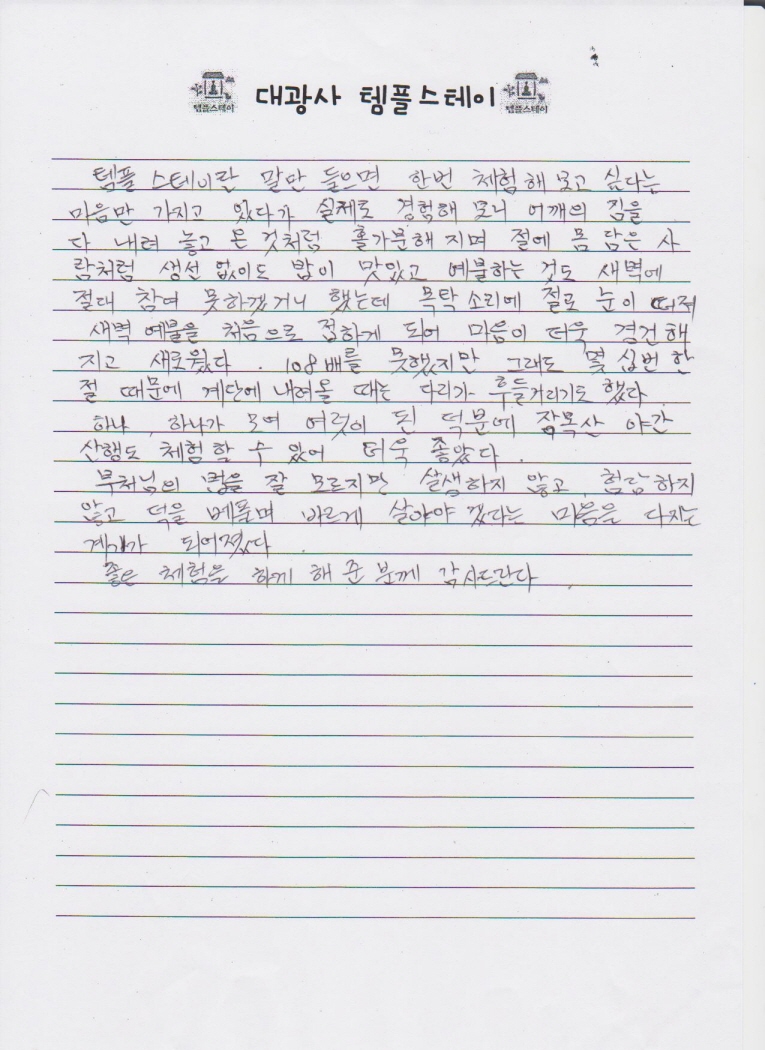 대광사 템플스테이
템플스테이
템플스테이
템플 스테이란 말만 들으면 한번 체험해 보고 싶다는
마음만 가지고 있다가 실제로 경험해 보니 어깨의 짐을
다 내려 놓고 온 것처럼 홀가분해 지며 절에 몸 담은 사
람처럼 생선 없이도 밥이 맛있고 예불하는 것도 새벽에
절대 참여 못하겠거니 했는데 목탁 소리에 절로 눈이 떠져
새벽 예불을 처음으로 접하게 되어 마음이 더욱 경건해
지고 새로웠다. 108배를 못했지만 그래도 몇 십번 한
절 때문에 계단에 내려올 때는 다리가 후들거리기도 했다.
하나, 하나가 모여 여럿이 된 덕분에 장복산 야간
산행도 체험할 수 있어 더욱 좋았다.
부처님의 법을 잘 모르지만 살생하지 않고, 험담하지
않고 덕을 베풀며 바르게 살아야 겠다는 마음을 다지는
계기가 되어졌다.
좋은 체험을 하게 해 준 분께 감사드린다.